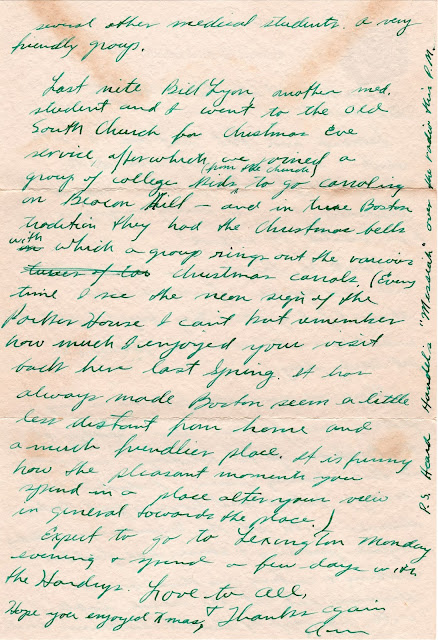 several other medical students. a very
friendly group.
Last nite Bill Lyon another med.
student and I went to the Old
South Church for Christmas Eve
service, after which, we joined a
group of college kids (from the church) to go caroling
on Beacon Hill – and in true Boston
tradition they had the Christmas bells
with which a group rings out the various
Christmas carols. (Every
time I see the neon sign of the
Parker House I can't but remember
how much I enjoyed your visit
back here last Spring. It has
always made Boston seem a little
less distant from home and
a much friendlier place. It is funny
how the pleasant moments you
spend in a place alter your view
in general towards the place.)
Expect to go to Lexington Monday
evening & spend a few days with
the Hardys. Love to all,
Hope you enjoyed Xmas, & Thanks again
P.S. Heard Handel's "Messiah" over the radio this P.M.